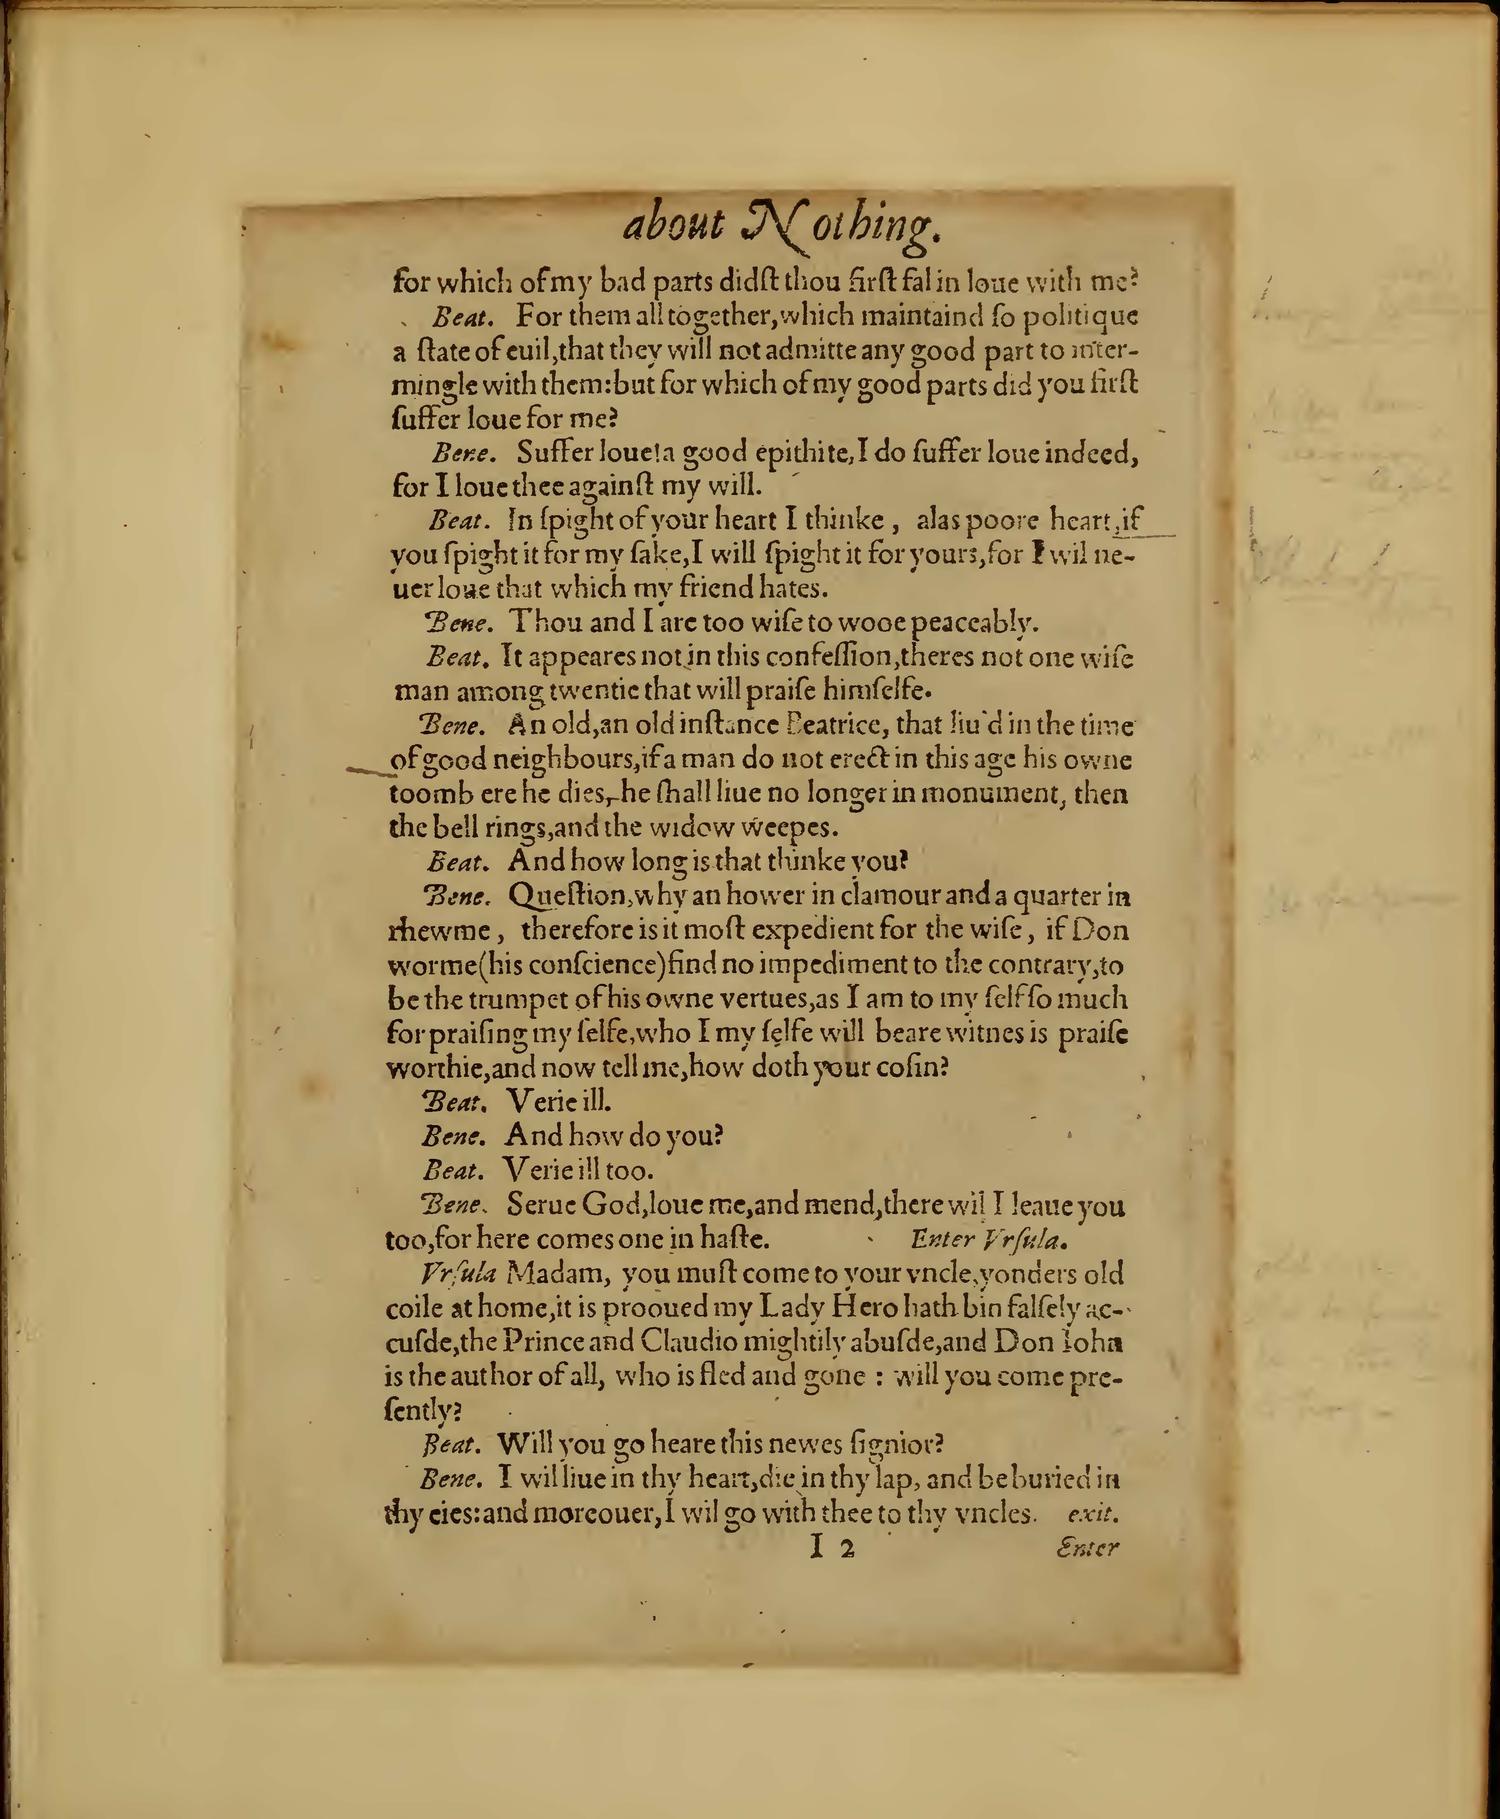 about Nothing.
for which of my bad parts didſt thou firſt fal in loue with me?
Beat. For them all together,which maintaind ſo politique
a ſtate of euil,that they will not admitte any good part to inter-
mingle with them:but for which of my good parts did you firſt
ſuffer loue for me?
Bene. Suffer loue!a good epithite,I do ſuffer loue indeed,
for I loue thee againſt my will.
Beat. In ſpight of your heart I thinke , alas poore heart,if
you ſpight it for my ſake,I will ſpight it for yours,for I wil ne-
uer loue that which my friend hates.
Bene. Thou and I are too wiſe to wooe peaceably.
Beat. It appeares not in this confeſſion,theres not one wiſe
man among twentie that will praiſe himſelfe.
Bene. An old,an old inſtance Beatrice, that liu'd in the time
of good neighbours,if a man do not erect in this age his owne
toomb ere he dies,he ſhall liue no longer in monument, then
the bell rings,and the widow weepes.
Beat. And how long is that thinke you?
Bene. Queſtion,why an hower in clamour and a quarter in
rhewme , therefore is it moſt expedient for the wiſe , if Don
worme(his conſcience)find no impediment to the contrary,to
be the trumpet of his owne vertues,as I am to my ſelf ſo much
for praiſing my ſelfe,who I my ſelfe will beare witnes is praiſe
worthie,and now tell me,how doth your coſin?
Beat. Verie ill.
Bene. And how do you?
Beat. Verie ill too.
Bene. Serue God,loue me,and mend,there wil I leaue you
too,for here comes one in haſte. Enter Vrſula.
Vrſula Madam, you muſt come to your vncle,yonders old
coile at home,it is prooued my Lady Hero hath bin falſely ac-
cuſde,the Prince and Claudio mightily abuſde,and Don Iohn
is the author of all, who is fled and gone : will you come pre-
ſently?
Beat. Will you go heare this newes ſignior?
Bene. I wil liue in thy heart,die in thy lap, and be buried in
thy eies:and moreouer,I wil go with thee to thy vncles. exit.
I 2 Enter